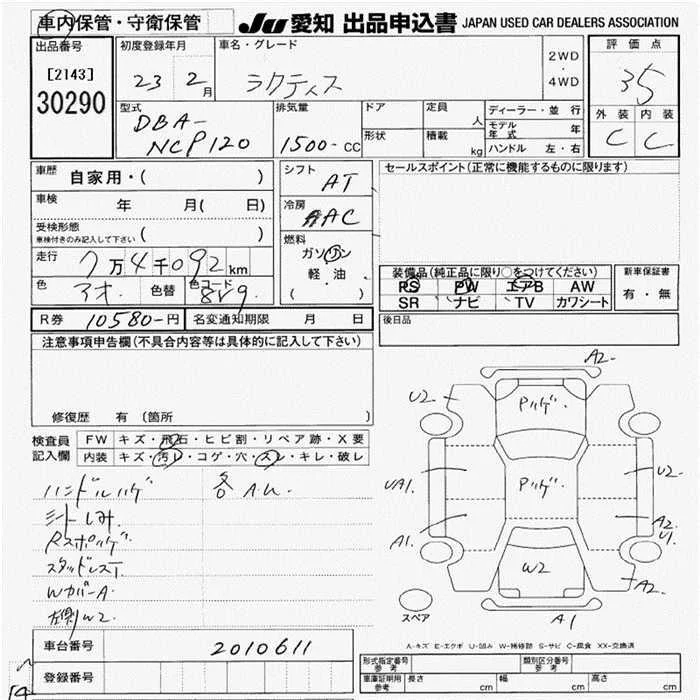 車内保管・守衛保管 JU 愛知 出品申込書 JAPAN USED CAR DEALERS ASSOCIATION
出品番号 初度登録年月 車名・グレード 2WD・4WD 評価点
[2143] 23 2月 ラクティス 35
30290 外装 内装
型式 排気量 ドア 定員 人 ディーラー・並行
DBA-NCP120 1500-CC 形状 積載 kg モデル年式 年 C C
ハンドル 左・右
車歴 自家用・( ) シフト AT セールスポイント(正常に機能するものに限ります)
車検 年 月( 日) 冷房 AAC
受検形態 車検付きのみ記入して下さい ( ) 燃料 ガソリン
軽・油
( )
走行 7万4千092km 装備品(純正品に限り○をつけてください) 新車保証書
色 アオ. 色替 色コード 8V9. PS PW エアB AW 有・無
SR ナビ TV カワシート
R券 10580-円 名変通知期限 月 日 後日品
注意事項申告欄(不具合内容等は具体的に記入して下さい)
修復歴 有 (箇所
検査員記入欄 FW キズ・飛石・ヒビ割・リペア跡・X要
内装 キズ・汚レ・コゲ・穴・スレ・キレ・破レ
ハンドルハゲ 各A.U.
シートしみ.
Rスポハゲ
スタッドレスT
WカバーA
左側W2.
A2-
U2- Pハゲ.
UA1. Pハゲ. U2
A1. A2 U1.
W2 A2-
スペア A1
A-キズ E-エクボ U-凹み W-補修跡 S-サビ C-腐食 XX-交換済
車台番号 2010611
登録番号
形式指定番号 参考 類別区分番号 参考
車庫証明用 参考 長さ cm 幅 cm 高さ cm